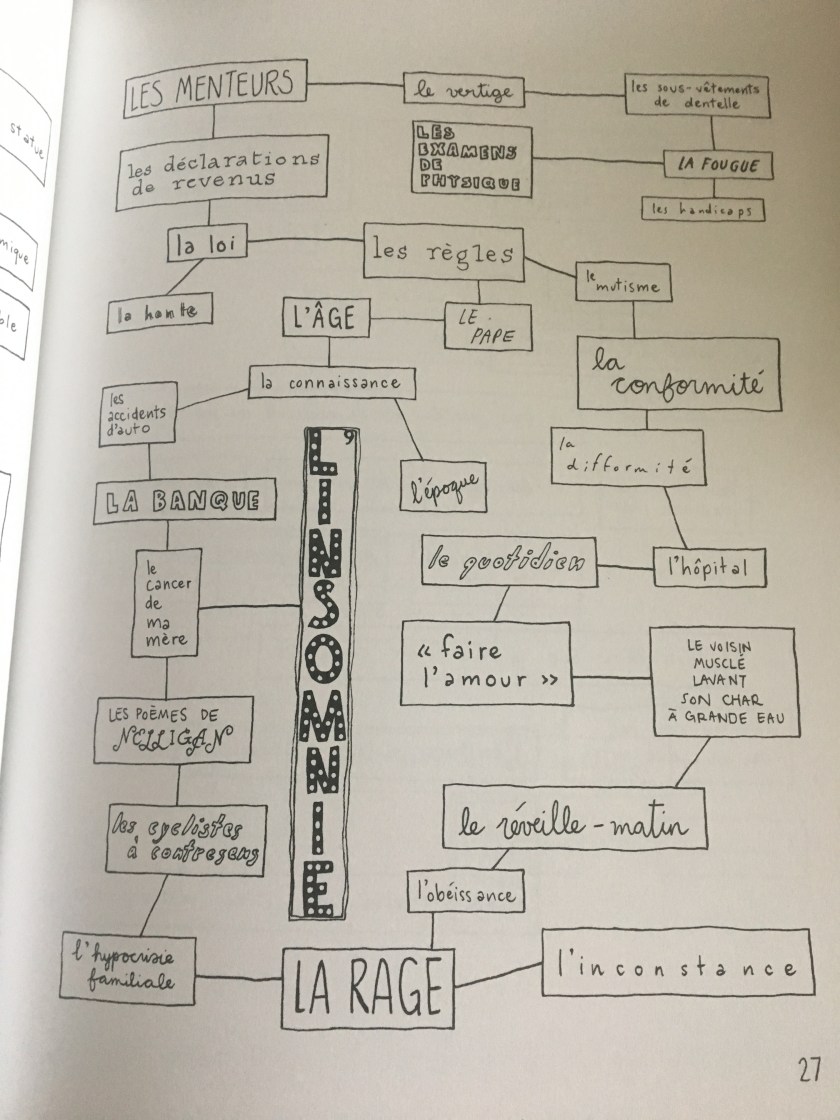 statue
mique
ble
LES MENTEURS
le vertige
les sous-vêtements
de dentelle
les déclarations
de revenus
LES
EXAMENS
DE
PHYSIQUE
LA FOUGUE
les handicaps
la loi
les règles
le
mutisme
la honte
L'ÂGE
LE
PAPE
la
conformité
la connaissance
les
accidents
d'auto
la
difformité
l'époque
LA BANQUE
L'INSOMNIE
le quotidien
l'hôpital
le
cancer
de
ma
mère
« faire
l'amour »
LE VOISIN
MUSCLÉ
LAVANT
SON CHAR
À GRANDE EAU
LES POÈMES DE
NELLIGAN
les cyclistes
à contresens
le réveille-matin
l'obéissance
l'hypocrisie
familiale
LA RAGE
l'inconstance
27